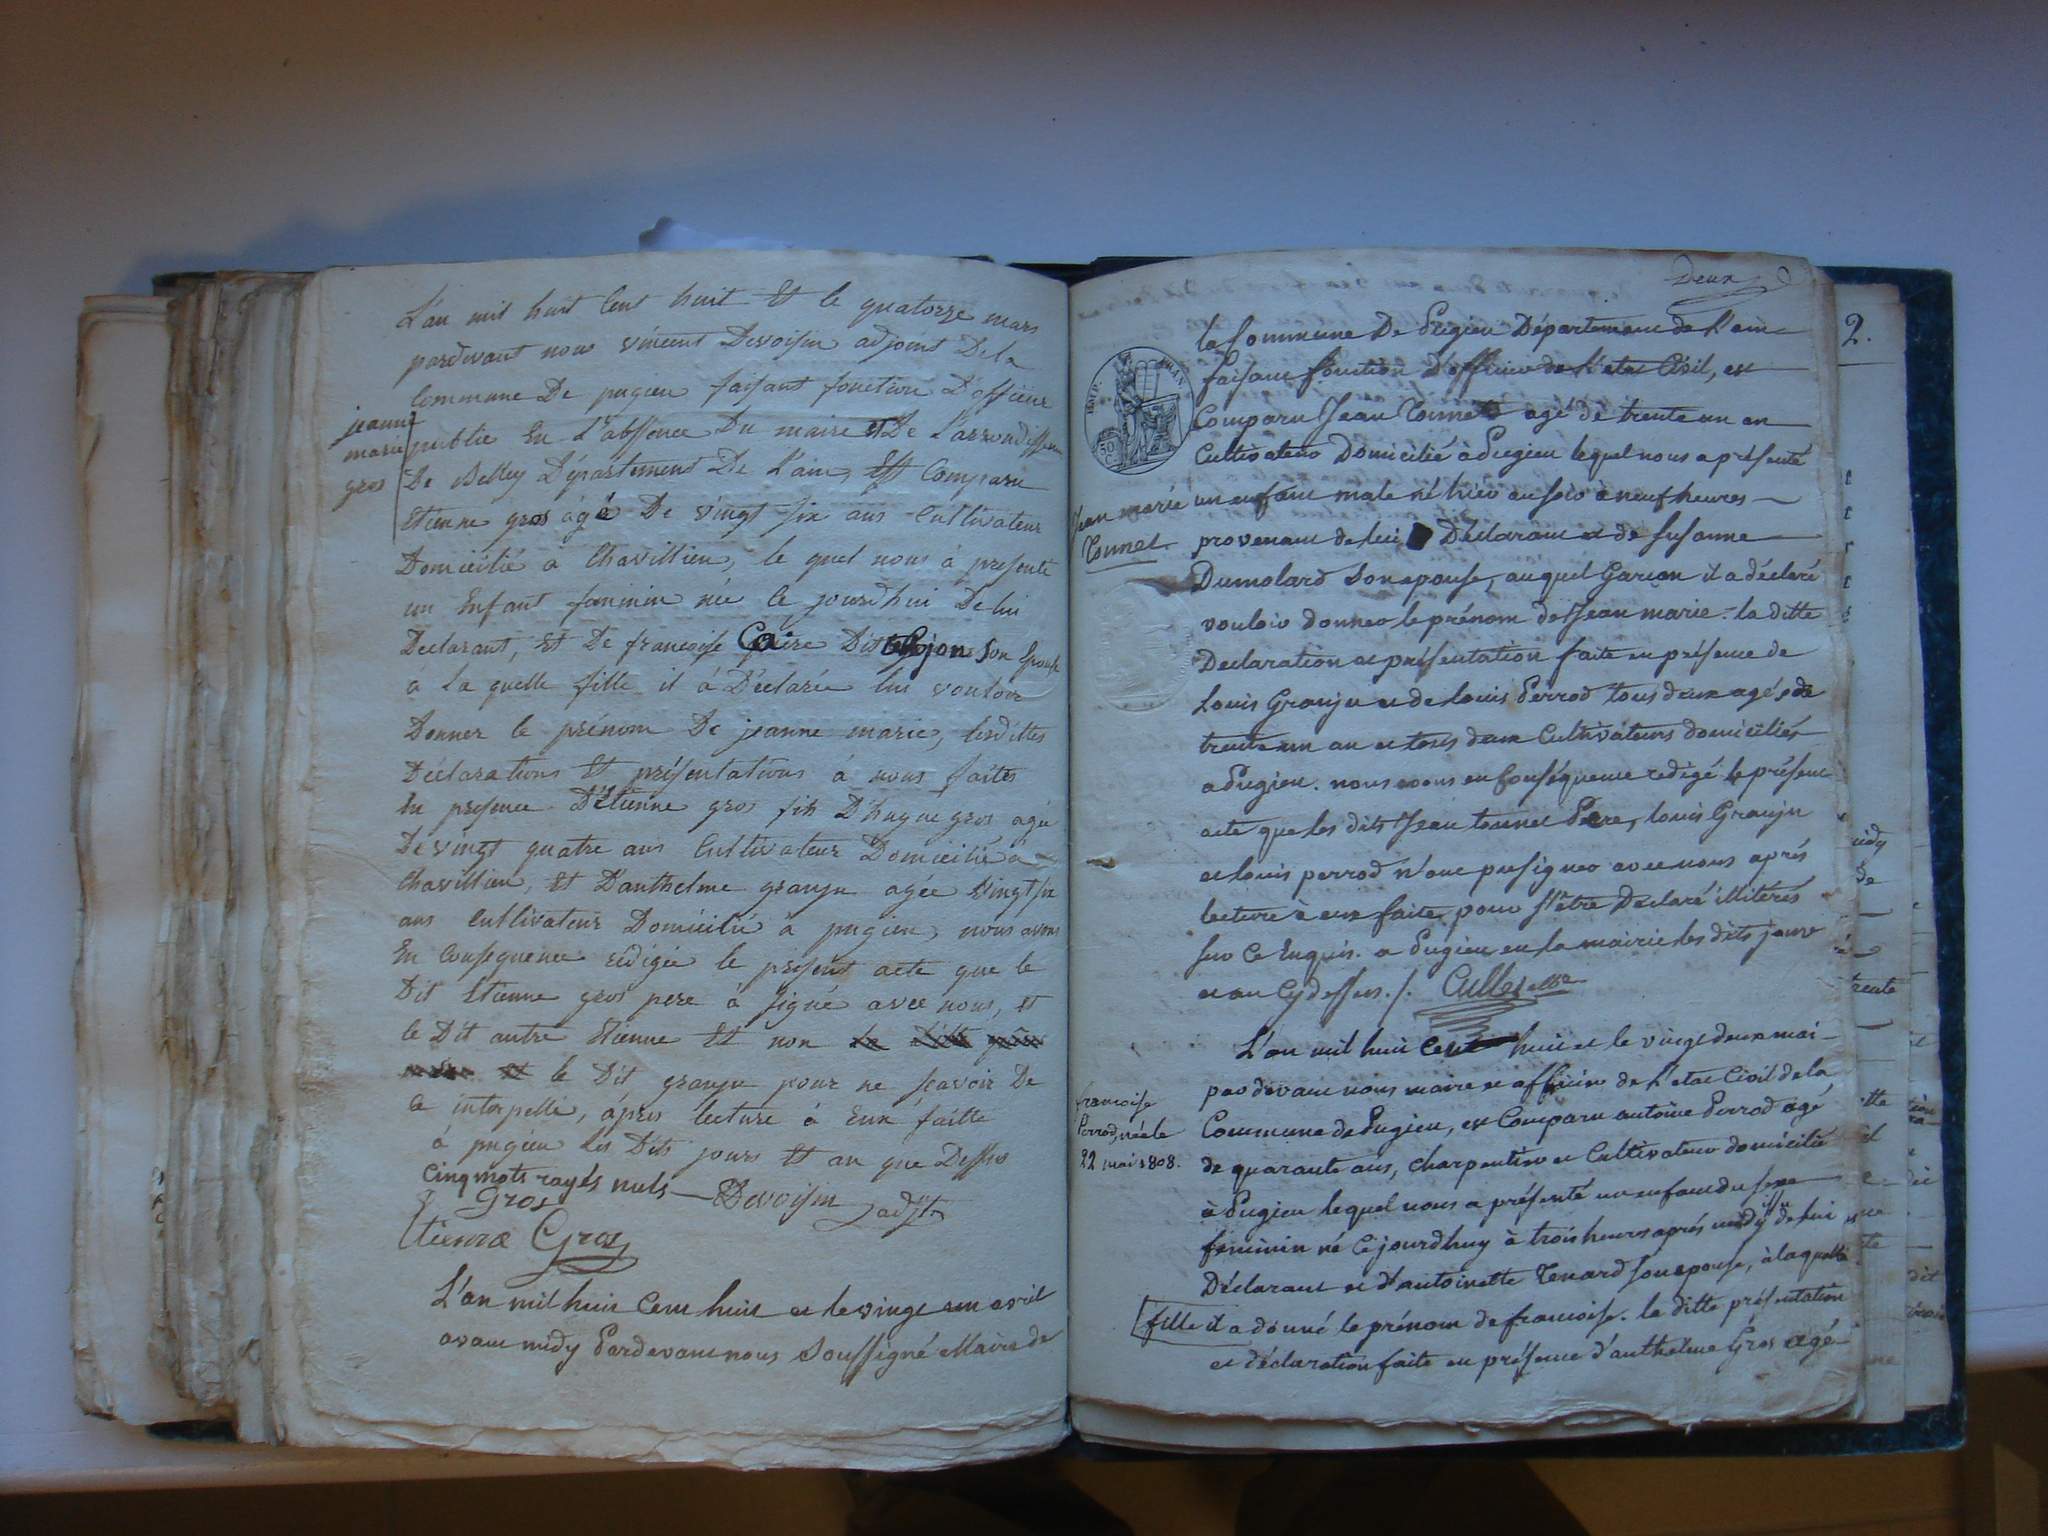 L'an mil huit Cent huit Et le quatorze mars
pardevant nous vincent Devoisin adjoint De la
Commune De pugieu faisant fonction D'officier
publie En L'abssence Du maire et De L'arrondissem
De Belley Département De L'ain, Est Comparu
Etienne gros agé De vingt six ans Cultivateur
Domicilié à Chavillieu, le quel nous à presenté
un Enfant feminin née Ce jourdhui De lui
Declarant, Et De francoise Dit son Epouse
à la quelle fille il à Déclarée lui vouloir
Donner le prénom De jeanne marie, lesdittes
Déclarations Et présentations à nous faites
En presence D'Etienne gros fils D'hugue gros agé
De vingt quatre ans Cultivateur Domicilié à
Chavillieu, Et D'anthelme granju agée vingt six
ans Cultivateur Domicilié à pugieu, nous avons
En Consequence rédigée le présent acte que le
Dit Etienne gros pere à signé avec nous, et
le Dit autre Etienne Et non
le Dit granju pour ne scavoir De
ce interpellé, áprés lecture à Eux faitte
à pugieu les Dits jours Et an que Dessus
Cinq mots rayés nuls
Gros Devoisin adjt
Etienne Gros
L'an mil huit Cent huit et le vingt un avril
avant midy Pardevant nous Soussigné Maire de
jeanne
marie
gros
Deux
2.
la Commune De Pugieu Département de L'ain
faisant fonction D'officier de L'etat Civil, est
Comparu Jean Tonnet agé de trente un an
Cultivateur Domicilié à Pugieu lequel nous a présenté
un enfant male né hier au soir à neuf heures
provenant de lui Déclarant et de Susanne
Dumolard Son epouse, auquel Garçon il a déclaré
vouloir donner le prénom de Jean marie. la ditte
Declaration et présentation faite en présence de
Louis Granju et de Louis Perrod tous deux agés de
trente un an et tous deux Cultivateurs domiciliés
a Pugieu. nous avons en Conséquence redigé le présent
acte que les dits Jean tonnet Pere, Louis Granju
et Louis perrod n'ont pu signer avec nous aprés
lecture à eux faite, pour s'être Declaré illiterés
sur Ce Enquis. a Pugieu en la mairie les dits jour
et an Cydessus./.
Jean marie
Tonnet
L'an mil huit Cent huit et le vingt deux mai
par devant nous maire et officier de L'etat Civil de la
Commune de Pugieu, est Comparu antoine Perrod agé
de quarante ans, Charpentier et Cultivateur domicilié
à Pugieu lequel nous a présenté un enfant du sexe
feminin né Cejourdhuy à trois heures aprés midy de lui
Déclarant et d'antoinette Tenard son epouse, à laquelle
fille il a donné le prénom de francoise. la ditte présentation
et déclaration faite en présence d'anthelme Gros agé
francoise
Perrod, née le
22 mai 1808.